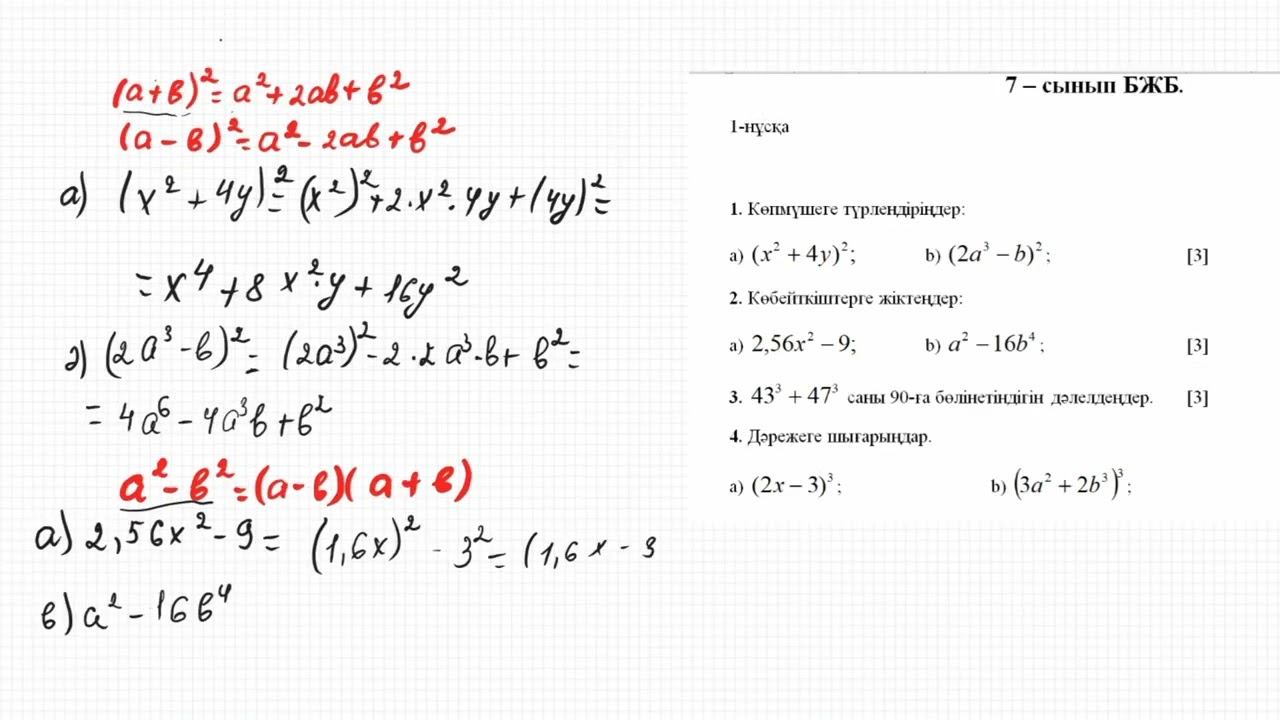 (a+в)²=a²+2ab+в²
(a-в)²=a²-2ab+в²
а) (x²+4y)²=(x²)²+2·x²·4y+(4y)²=
=x⁴+8x²·y+16y²
(2a³-в)²=(2a³)²-2·2a³·в+в²=
=4a⁶-4a³в+в²
a²-в²=(a-в)(a+в)
а) 2,56x²-9=(1,6x)²-3²=(1,6x-3
в) a²-16в⁴
7 – сынып БЖБ.
1-нұсқа
1. Көпмүшеге түрлендіріңдер:
a) (x² + 4y)²; b) (2a³ − b)²; [3]
2. Көбейткіштерге жіктеңдер:
a) 2,56x² − 9; b) a² − 16b⁴; [3]
3. 43³ + 47³ саны 90-ға бөлінетіндігін дәлелдеңдер. [3]
4. Дәрежеге шығарыңдар.
a) (2x − 3)³; b) (3a² + 2b³)³;